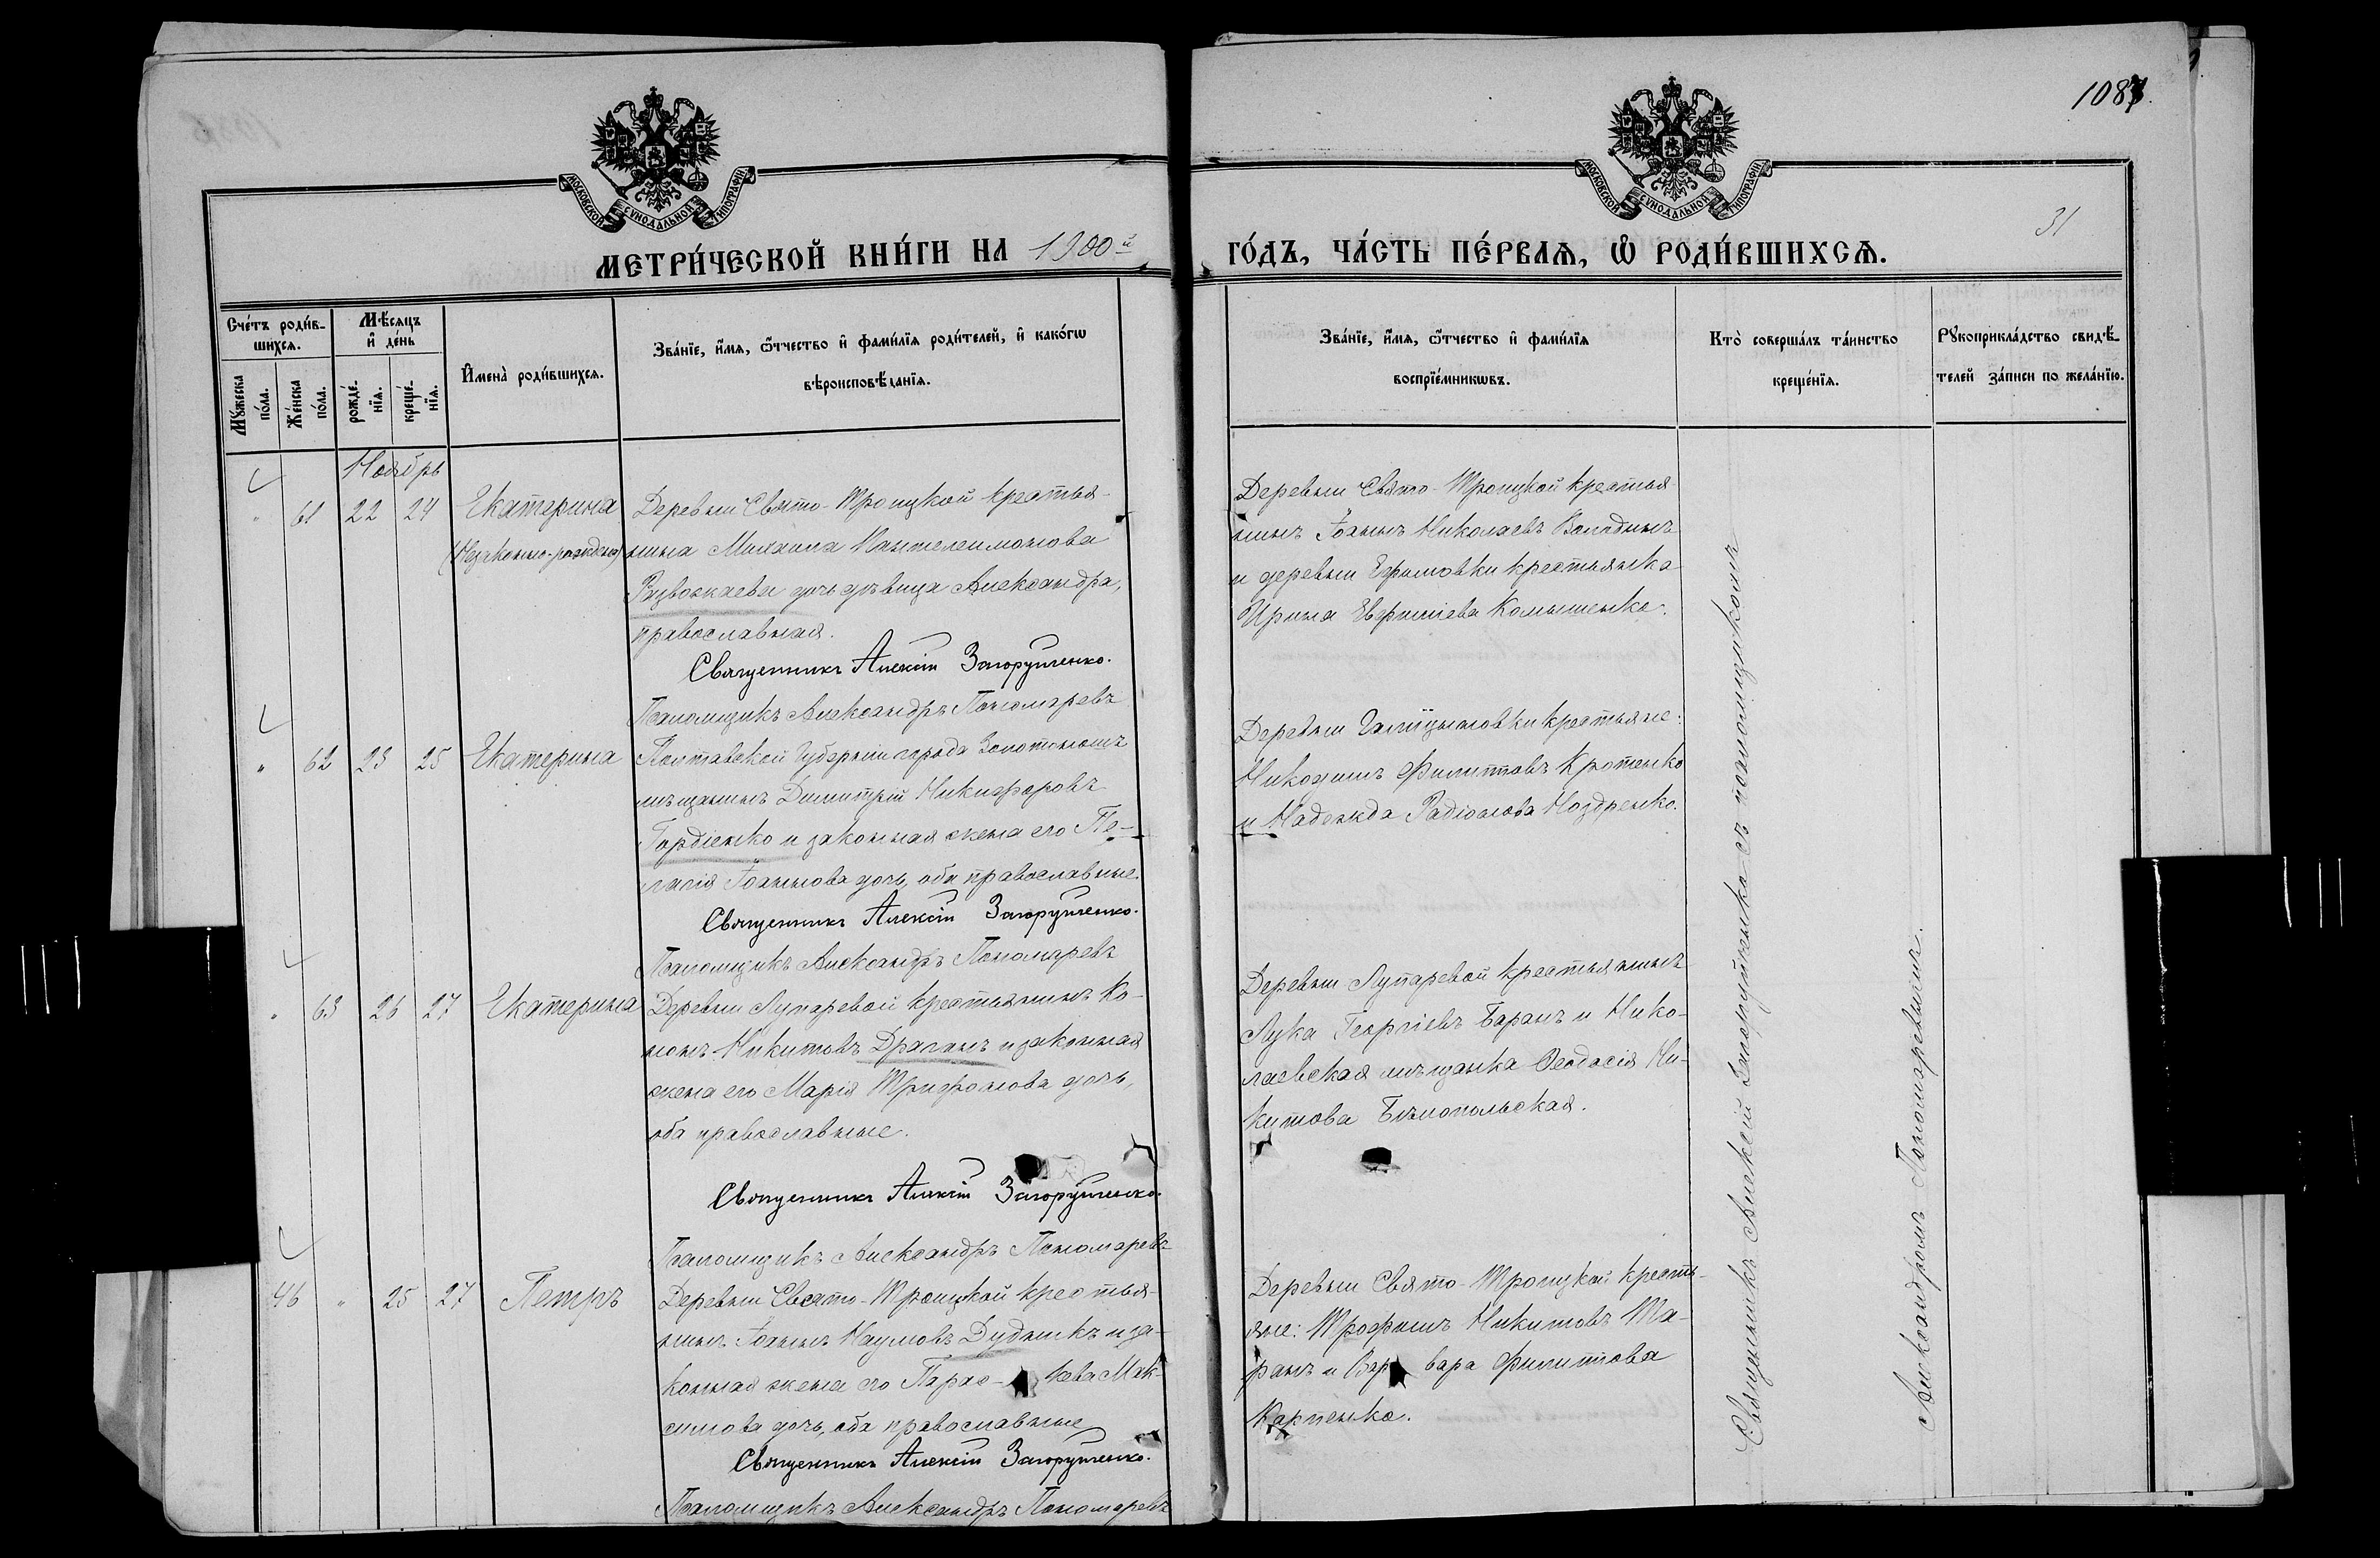 1087.
31
МОСКОВСКОЙ СѴНОДАЛЬНОЙ ТИПОГРАФІИ
МОСКОВСКОЙ СѴНОДАЛЬНОЙ ТИПОГРАФІИ
МЕТРИ́ЧЕСКОЙ КНИ́ГИ НА 1900й
ГО́ДЪ, ЧА́СТЬ ПЕ́РВАѦ, Ѡ҆ РОДИ́ВШИХСѦ.
Сче́тъ роди́в-
шихсѧ.
Мѣ́сѧцъ
и҆ де́нь
Мꙋ́жеска
по́ла.
Же́нска
по́ла.
рожде́-
нїѧ.
креще́-
нїѧ.
И҆мена̀ роди́вшихсѧ.
Зва́нїе, и҆́мѧ, ѻ҆́тчество и҆ фами́лїѧ роди́телей, и҆ како́гѡ
вѣроисповѣ́данїѧ.
Зва́нїе, и҆́мѧ, ѻ҆́тчество и҆ фами́лїѧ
воспрїе́мникѡвъ.
Кто̀ соверша́лъ та́инство
креще́нїѧ.
Рꙋкоприкла́дство свидѣ́-
телей за́писи по жела́нїю.
Ноябрь
" 61 22 24 Екатерина
(Незаконно-рожденая)
Деревни Свято-Троицкой крестья-
нина Михаила Пантелеимонова
Развожаева дочь дѣвица Александра,
православная.
Священникъ Алексій Загорульченко.
Псаломщикъ Александръ Пономаревъ
Деревни Свято-Троицкой крестья-
нинъ Іоаннъ Николаевъ Володинъ
и деревни Ефимовки крестьянка
Ирина Евфиміева Комышенко.
" 62 23 25 Екатерина
Полтавской Губерніи города Золотоноши
мѣщанинъ Димитрій Никифоровъ
Гордіенко и законная жена его Пе-
лагія Іоаннова дочь, оба православные
Священникъ Алексій Загорульченко.
Псаломщикъ Александръ Пономаревъ
Деревни Галицыновки крестьяне:
Никодимъ Филипповъ Кротенко
и Надежда Радіонова Ноздренко.
" 63 26 27 Екатерина
Деревни Лупаревой крестьянинъ Ко-
нонъ Никитовъ Драганъ и законная
жена его Марія Трифонова дочь,
оба православные.
Священникъ Алексій Загорульченко.
Псаломщикъ Александръ Пономаревъ
Деревни Лупаревой крестьянинъ
Лука Георгіевъ Баранъ и Нико-
лаевская мѣщанка Ѳеодосія Ни-
китова Бѣлопольская.
46 " 25 27 Петръ
Деревни Свято-Троицкой крестья-
нинъ Іоаннъ Наумовъ Дудникъ и за-
конная жена его Параскева Мак-
симова дочь, оба православные
Священникъ Алексій Загорульченко.
Псаломщикъ Александръ Пономаревъ
Деревни Свято-Троицкой кресть-
яне: Трофимъ Никитовъ Та-
ранъ и Варвара Филиппова
Карпенко.
Священникъ Алексій Загорульченко съ псаломщикомъ
Александромъ Пономаревымъ.